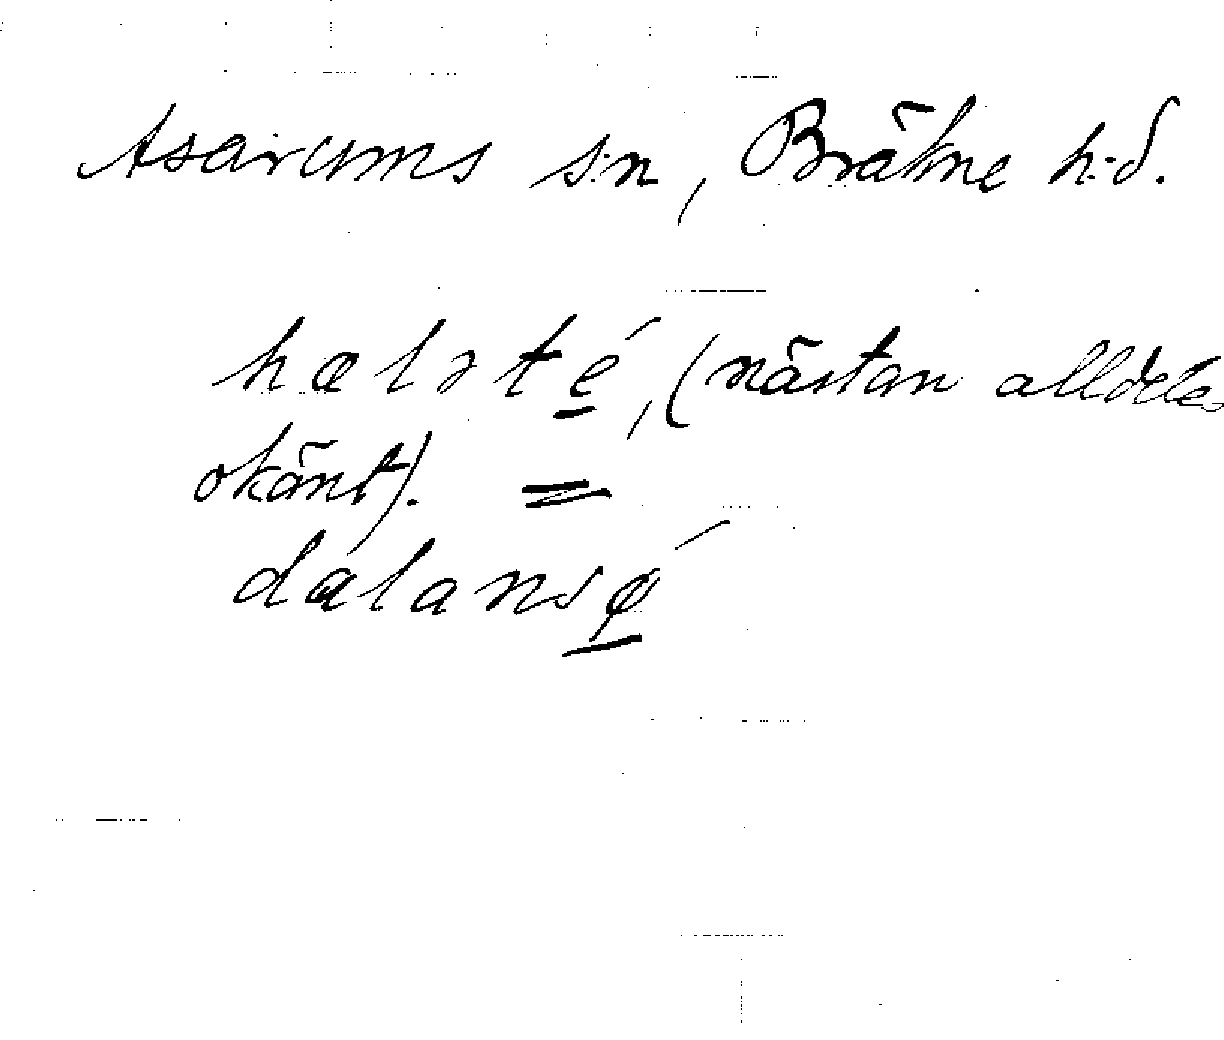 Asarums s:n, Bräkne h:d.
hælsté, (nästan alldeles
okänt). =
dalansǿ